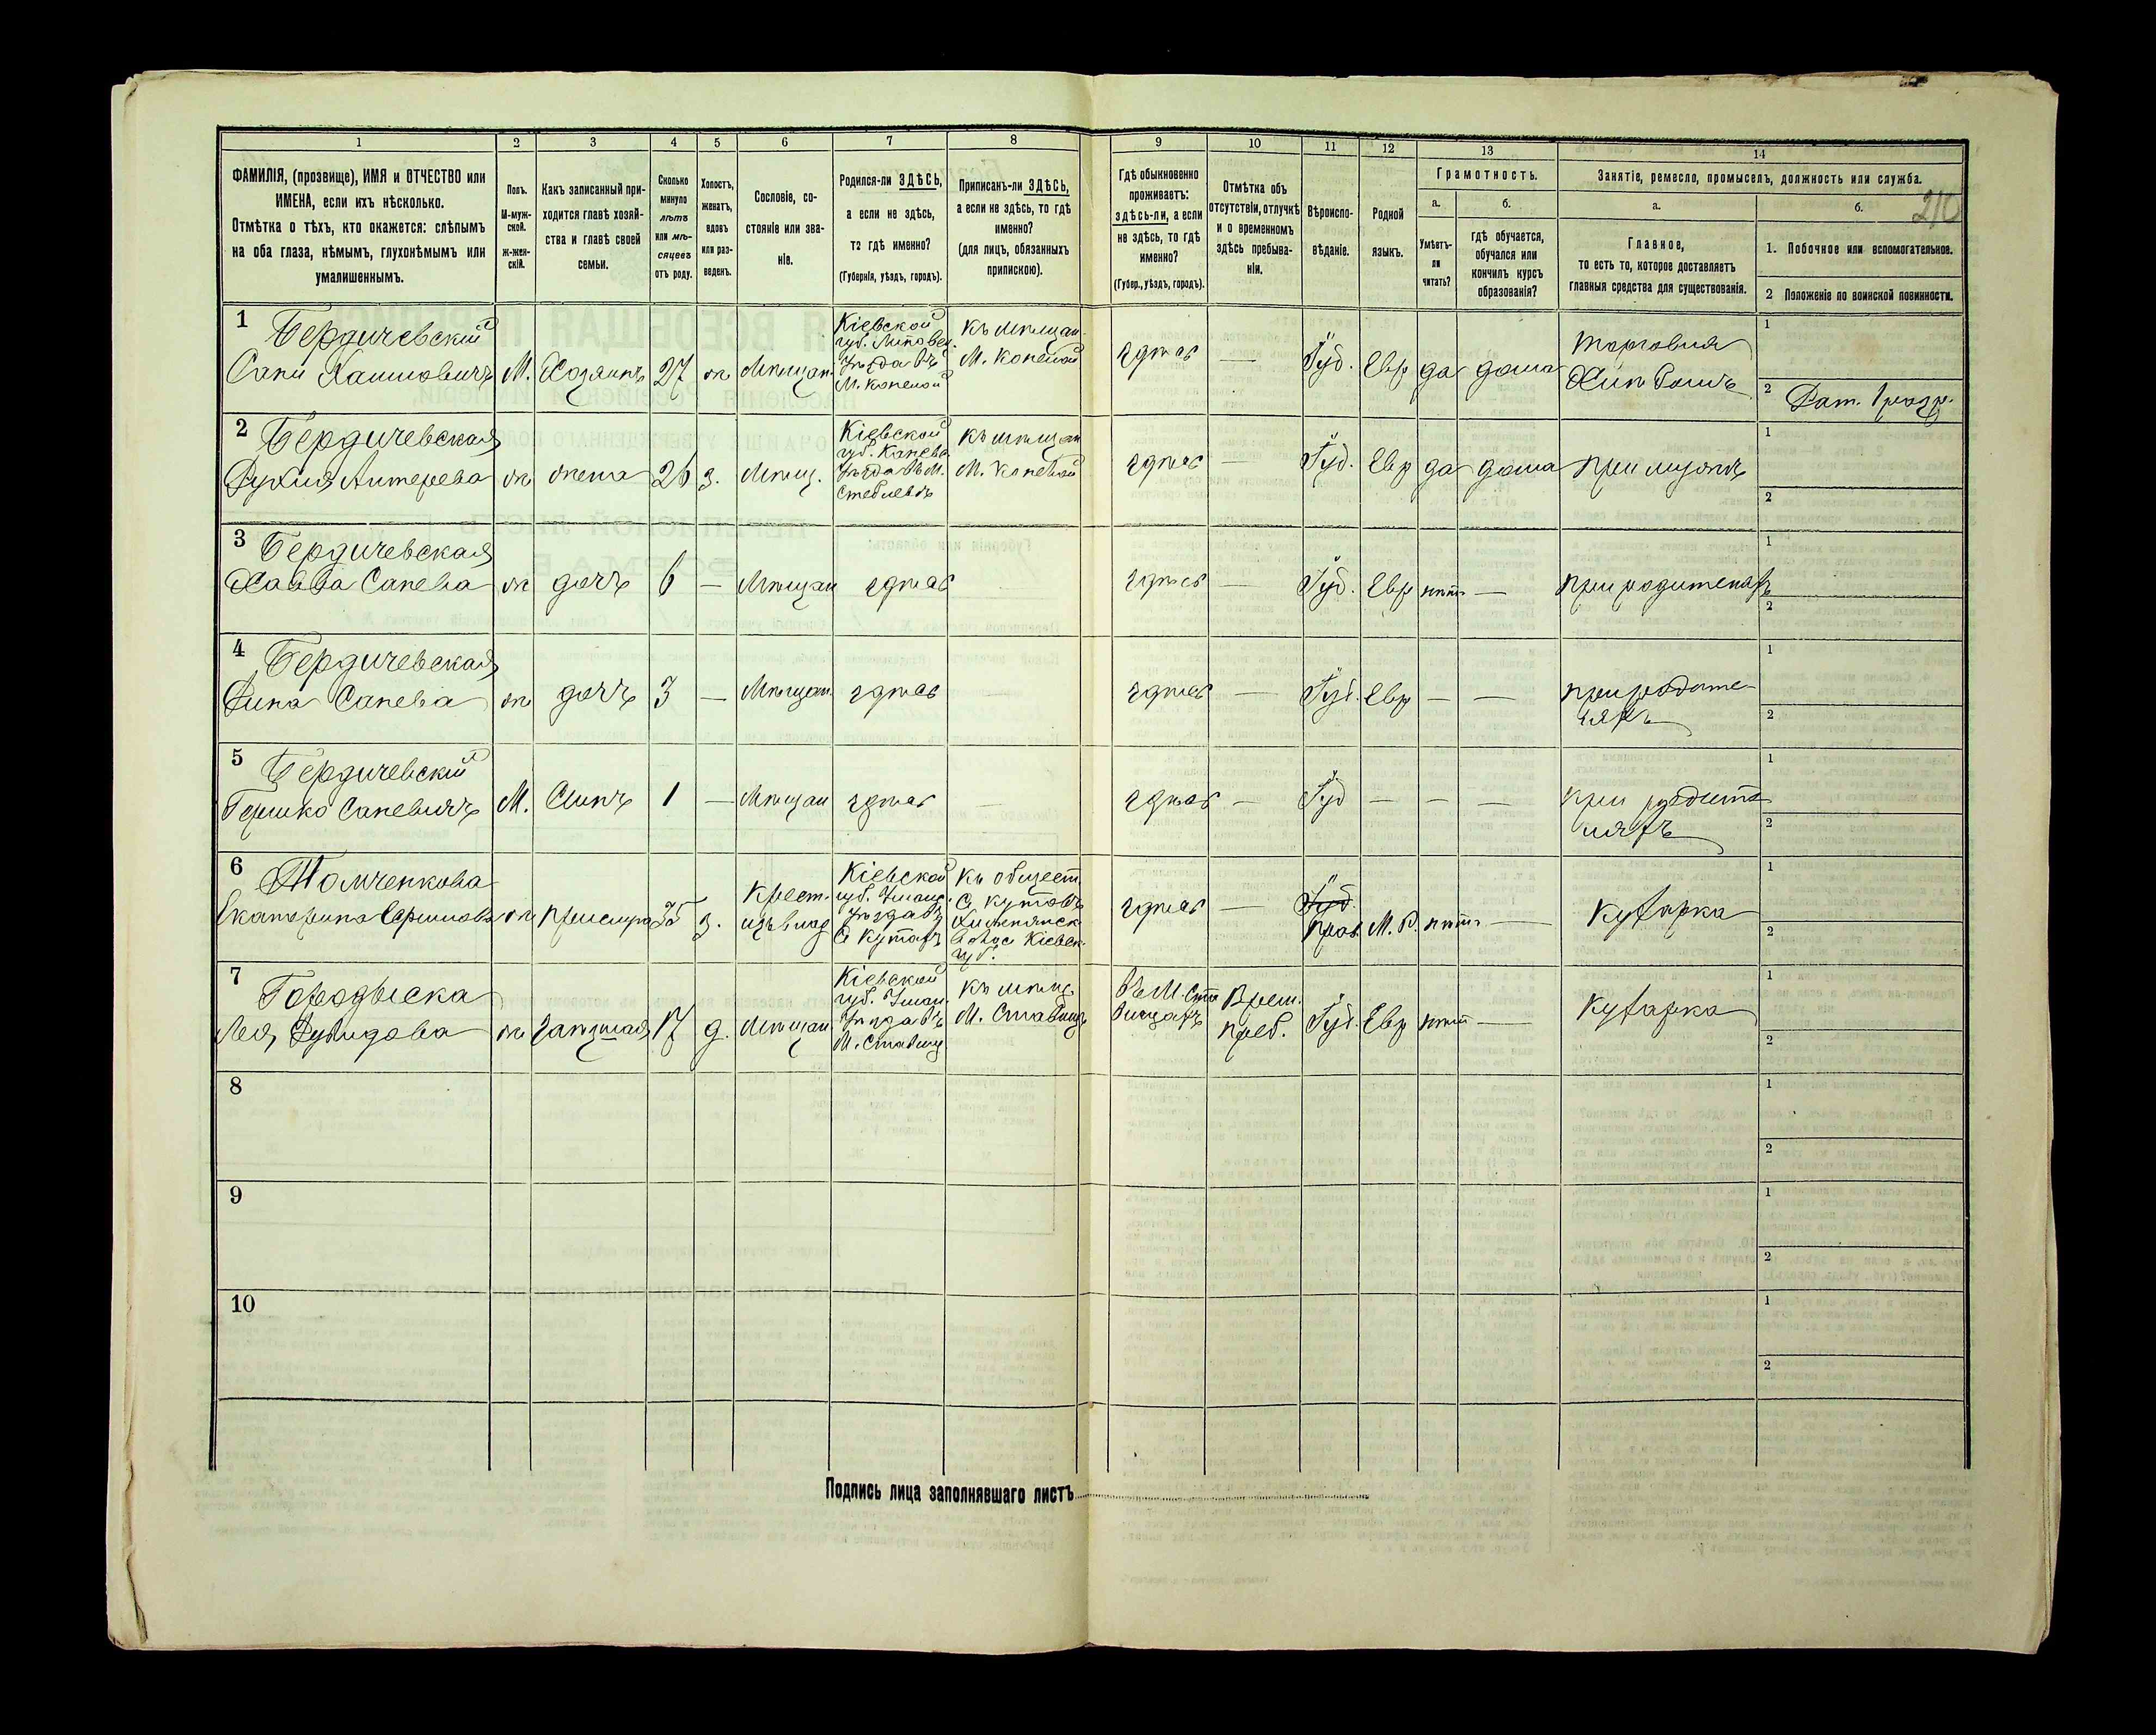 1 2 3 4 5 6 7 8 9 10 11 12 13 14
ФАМИЛІЯ, (прозвище), ИМЯ и ОТЧЕСТВО или
ИМЕНА, если ихъ нѣсколько.
Отмѣтка о тѣхъ, кто окажется: слѣпымъ
на оба глаза, нѣмымъ, глухонѣмымъ или
умалишеннымъ.
Полъ.
М-муж-
ской.
ж-жен-
скій.
Какъ записанный при-
ходится главѣ хозяй-
ства и главѣ своей
семьи.
Сколько
минуло
лѣтъ
или мѣ-
сяцевъ
отъ роду.
Холостъ,
женатъ,
вдовъ
или раз-
веденъ.
Сословіе, со-
стояніе или зва-
ніе.
Родился-ли ЗДѢСЬ,
а если не здѣсь,
то гдѣ именно?
(Губернія, уѣздъ, городъ).
Приписанъ-ли ЗДѢСЬ,
а если не здѣсь, то гдѣ
именно?
(для лицъ, обязанныхъ
припискою).
Гдѣ обыкновенно
проживаетъ:
здѣсь-ли, а если
не здѣсь, то гдѣ
именно?
(Губер., уѣздъ, городъ).
Отмѣтка объ
отсутствіи, отлучкѣ
и о временномъ
здѣсь пребыва-
ніи.
Вѣроиспо-
вѣданіе.
Родной
языкъ.
Грамотность.
а.
Умѣетъ-
ли
читать?
б.
гдѣ обучается,
обучался или
кончилъ курсъ
образованія?
Занятіе, ремесло, промыселъ, должность или служба.
а.
Главное,
то есть то, которое доставляетъ
главныя средства для существованія.
б.
210
1. Побочное или вспомогательное.
2 Положеніе по воинской повинности.
1 Бердичевскій
М. Хозяинъ 27 ж Мѣщан.
Кіевской
губ. Липовец.
уѣзда въ
къ мѣщан.
здѣсь — Іуд. Евр да дома
торговля
1
2 Рат. 1 разр.
2 Бердичевская
ж жена 26 з. Мѣщ.
Кіевской
губ. Канев.
уѣзда въ М.
Стеблевѣ
къ мѣщан
здѣсь — Іуд. Евр да дома при мужѣ
1
2
3 Бердичевская
ж дочь 6 — Мѣщан здѣсь
здѣсь — Іуд. Евр нѣтъ — при родителяхъ
1
2
4 Бердичевская
ж дочь 3 — Мѣщан. здѣсь —
здѣсь — Іуд. Евр — —
при родите-
ляхъ
1
2
5 Бердичевскій
Гершко М. Сынъ 1 — Мѣщан здѣсь —
здѣсь — Іуд — — —
при родите
ляхъ
1
2
6
Екатерина ж з.
Крест.
Кіевской
губ. Уман.
уѣзда въ
къ общест.
Кіевск.
губ.
здѣсь — Іуд.
Прав. М. Р. нѣтъ — Кухарка
1
2
7
Лея ж 17 д. Мѣщан
Кіевской
губ. Уман.
уѣзда въ
М. Ставищ
къ мѣщ.
М. Ставищ
въ М. Ста
вищахъ
Врем.
преб.
Іуд. Евр нѣтъ — Кухарка
1
2
8
1
2
9
1
2
10
1
2
Подпись лица заполнявшаго листъ